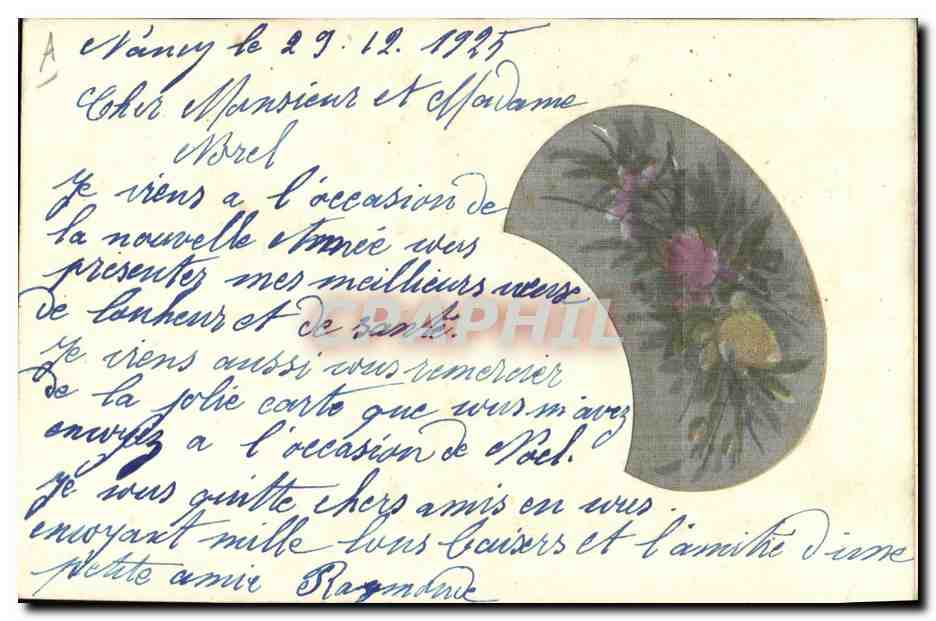 A
Nancy le 29. 12. 1925
Cher Monsieur et Madame
Norel
Je viens a l'occasion de
la nouvelle Année vous
présenter mes meillieurs veux
de bonheur et de santé.
Je viens aussi vous remercier
de la jolie carte que vous m'avez
envoyez a l'occasion de Noel.
Je vous quitte chers amis en vous
envoyant mille bons baisers et l'amitié d'une
petite amie Raymonde
CPAPHIL